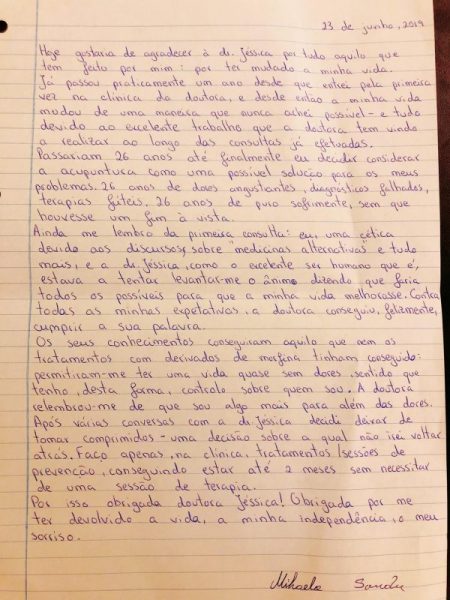 23 de junho, 2019
Hoje gostaria de agradecer à dr. Jéssica por tudo aquilo que
tem feito por mim: por ter mudado a minha vida.
Já passou praticamente um ano desde que entrei pela primeira
vez na clínica da doutora, e desde então a minha vida
mudou de uma maneira que nunca achei possível - e tudo
devido ao excelente trabalho que a doutora tem vindo
a realizar ao longo das consultas já efetuadas.
Passariam 26 anos até finalmente eu decidir considerar
a acupuntura como uma possível solução para os meus
problemas. 26 anos de dores angustantes, diagnósticos falhados,
terapias fúteis. 26 anos de puro sofrimento, sem que
houvesse um fim à vista.
Ainda me lembro da primeira consulta: eu, uma cética
devido aos discursos sobre "medicinas alternativas" e tudo
mais, e a dr. Jéssica, como o excelente ser humano que é,
estava a tentar levantar-me o ânimo dizendo que faria
todos os possíveis para que a minha vida melhorasse. Contra
todas as minhas expetativas, a doutora conseguiu, felizmente,
cumprir a sua palavra.
Os seus conhecimentos conseguiram aquilo que nem os
tratamentos com derivados de morfina tinham conseguido:
permitiram-me ter uma vida quase sem dores, sentido que
tenho, desta forma, controlo sobre quem sou. A doutora
relembrou-me de que sou algo mais para além das dores.
Após várias conversas com a dr. Jéssica decidi deixar de
tomar comprimidos - uma decisão sobre a qual não irei voltar
atrás. Faço apenas, na clínica, tratamentos/sessões de
prevenção, conseguindo estar até 2 meses sem necessitar
de uma sessão de terapia.
Por isso obrigada doutora Jéssica! Obrigada por me
ter devolvido a vida, a minha independência, o meu
sorriso.
Mihaela Sandu